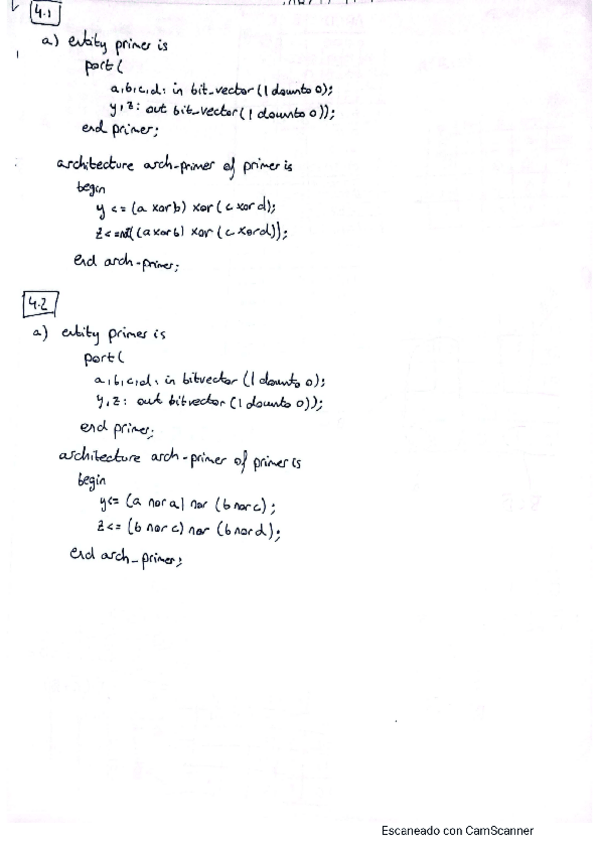 4.1
a) entity primer is
port(
a,b,c,d: in bit_vector(1 downto 0);
y,z: out bit_vector(1 downto 0));
end primer;
architecture arch-primer of primer is
begin
y <= (a xor b) xor (c xor d);
z <= not((a xor b) xor (c xor d));
end arch-primer;
4.2
a) entity primer is
port(
a,b,c,d: in bitvector (1 downto 0);
y,z: out bitvector (1 downto 0));
end primer;
architecture arch-primer of primer is
begin
y <= (a nor a) nor (b nor c);
z <= (b nor c) nor (b nor d);
end arch_primer;
Escaneado con CamScanner